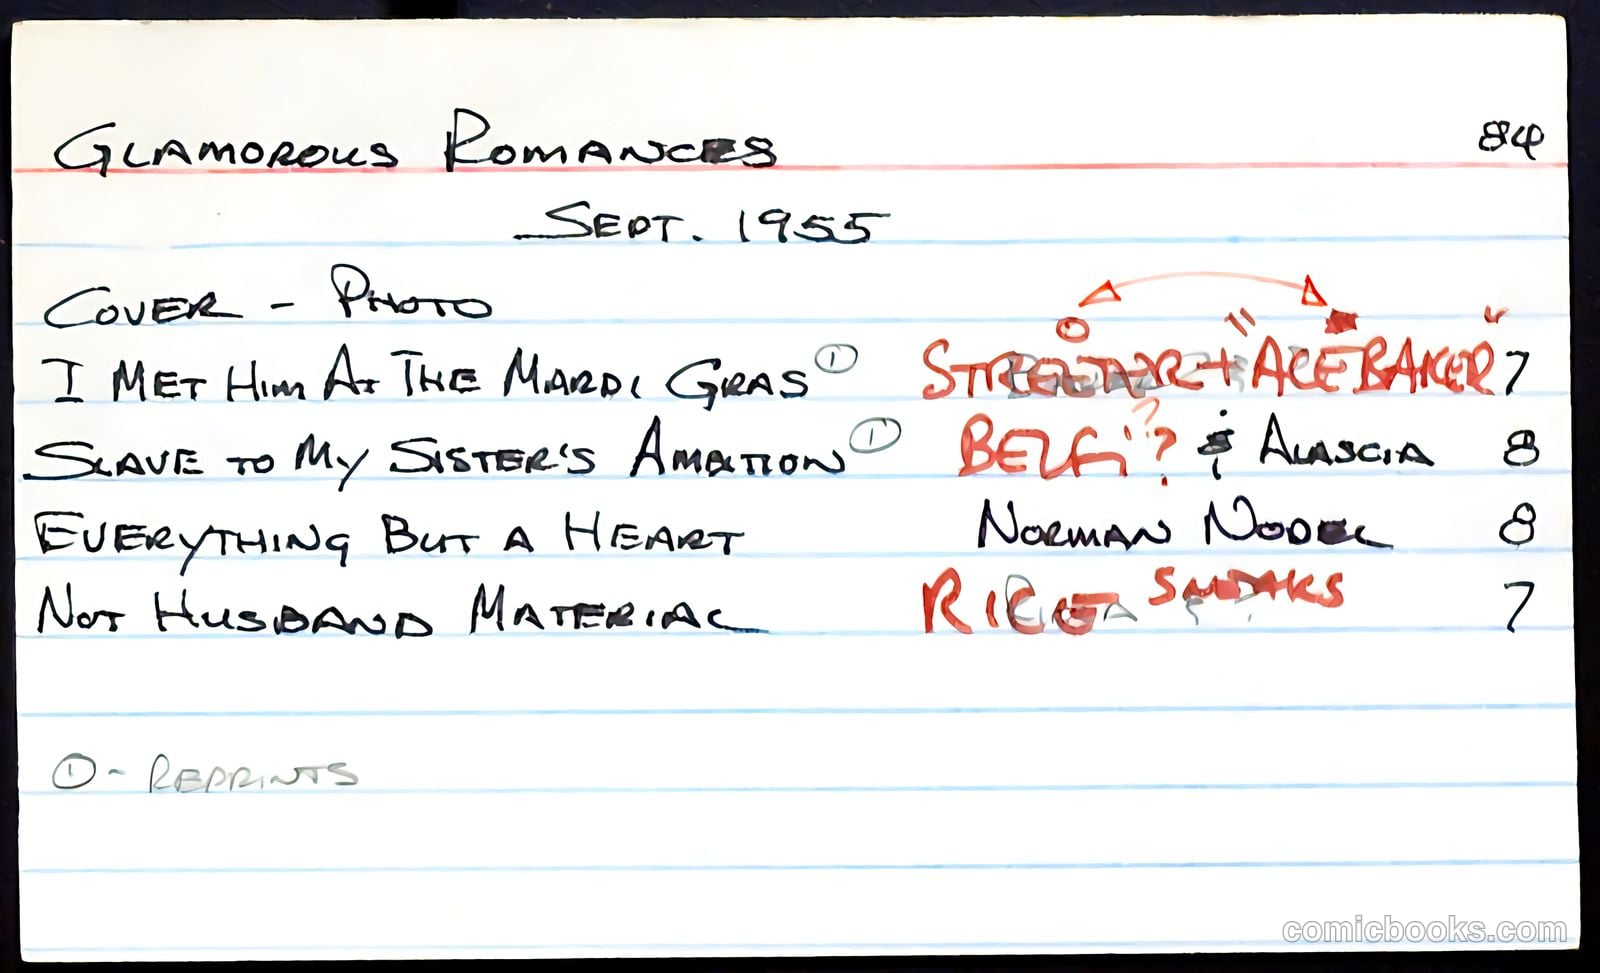 GLAMOROUS ROMANCES 84
SEPT. 1955
COVER - PHOTO
I MET HIM AT THE MARDI GRAS ① + "ACE BAKER" 7
SLAVE TO MY SISTER'S AMBITION ① BELFI? & ALASCIA 8
EVERYTHING BUT A HEART NORMAN NODEL 8
NOT HUSBAND MATERIAL RICE 7
① - REPRINTS
comicbooks.com